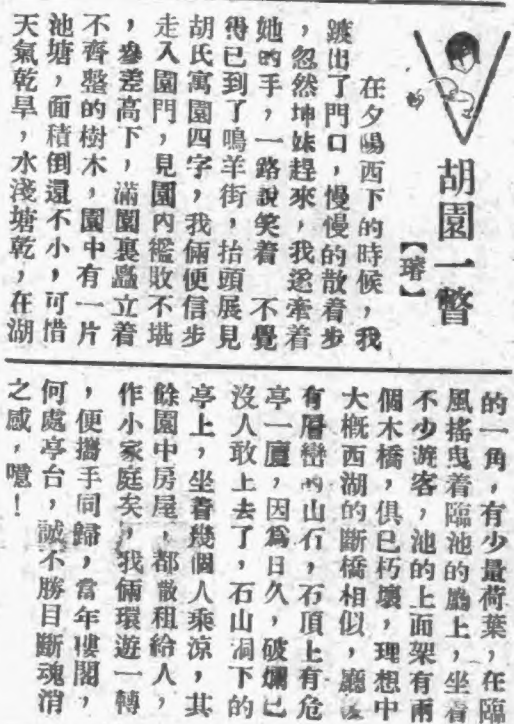 胡園一瞥
【璿】
在夕陽西下的時候，我
踱出了門口，慢慢的散着步
，忽然坤妹趕來，我遂牽着
她的手，一路說笑着　不覺
得已到了鳴羊街，抬頭展見
胡氏寓園四字，我倆便信步
走入園門，見園內襤敗不堪
，參差高下，滿園裏矗立着
不齊整的樹木，園中有一片
池塘，面積倒還不小，可惜
天氣乾旱，水淺塘乾，在湖
的一角，有少量荷葉，在臨
風搖曳着臨池的鵰上，坐着
不少游客，池的上面架有兩
個木橋，俱已朽壞，理想中
大概西湖的斷橋相似，廳後
有層巒的山石，石頂上有危
亭一廈，因爲日久，破爛已
沒人敢上去了，石山洞下的
亭上，坐着幾個人乘凉，其
餘園中房屋，都散租給人，
作小家庭矣，我倆環遊一轉
，便攜手同歸，當年樓閣，
何處亭台，誠不勝目斷魂消
之感，噫！